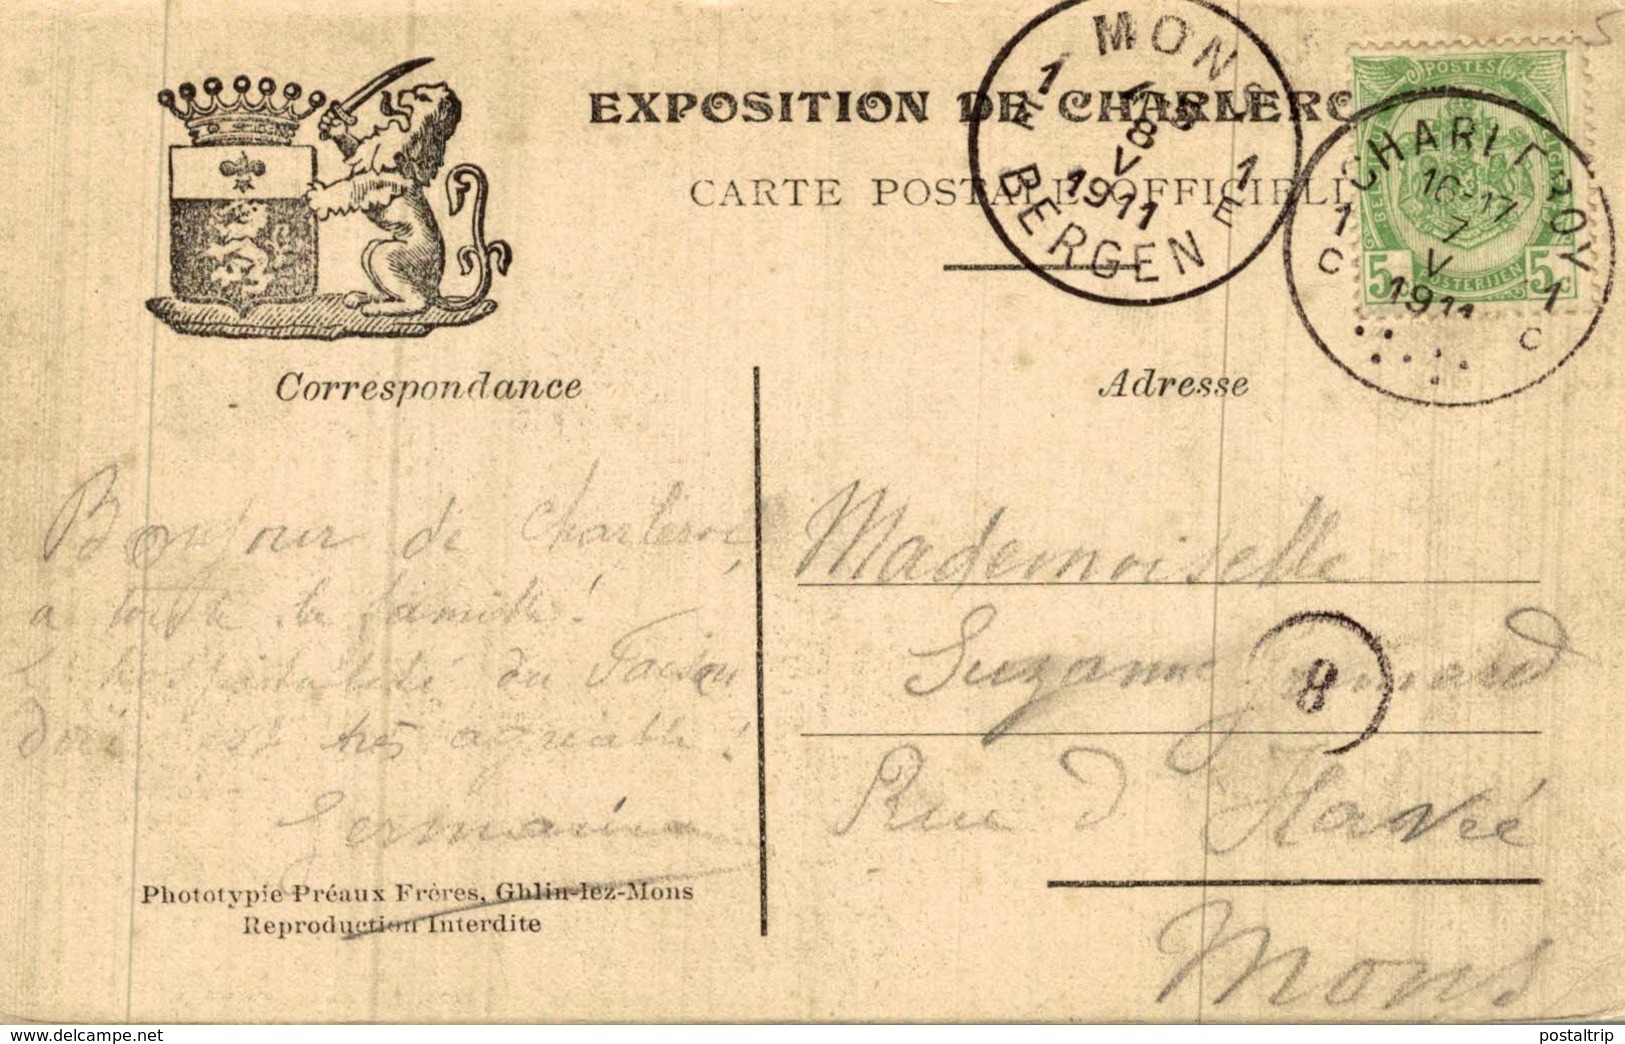 EXPOSITION DE CHARLERO
CARTE POSTALE OFFICIELL
MONS
1 E
8 V
1911
1 E
BERGEN
POSTES
CHARLEROY
16-17
7
V
1911
1 C
1 C
5c POSTERIJEN 5c
Correspondance
Adresse
Bonjour de Charleroi,
a toute la famille!
L'hospitalité du Faisan
Doré est très agréable!
Germaine
Mademoiselle
Suzanne
8
Rue d'Havré
Mons
Phototypie Préaux Frères, Ghlin-lez-Mons
Reproduction Interdite
delcampe.net
postaltrip